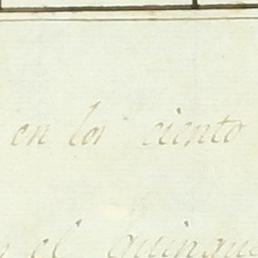 en los ciento
y el quinque